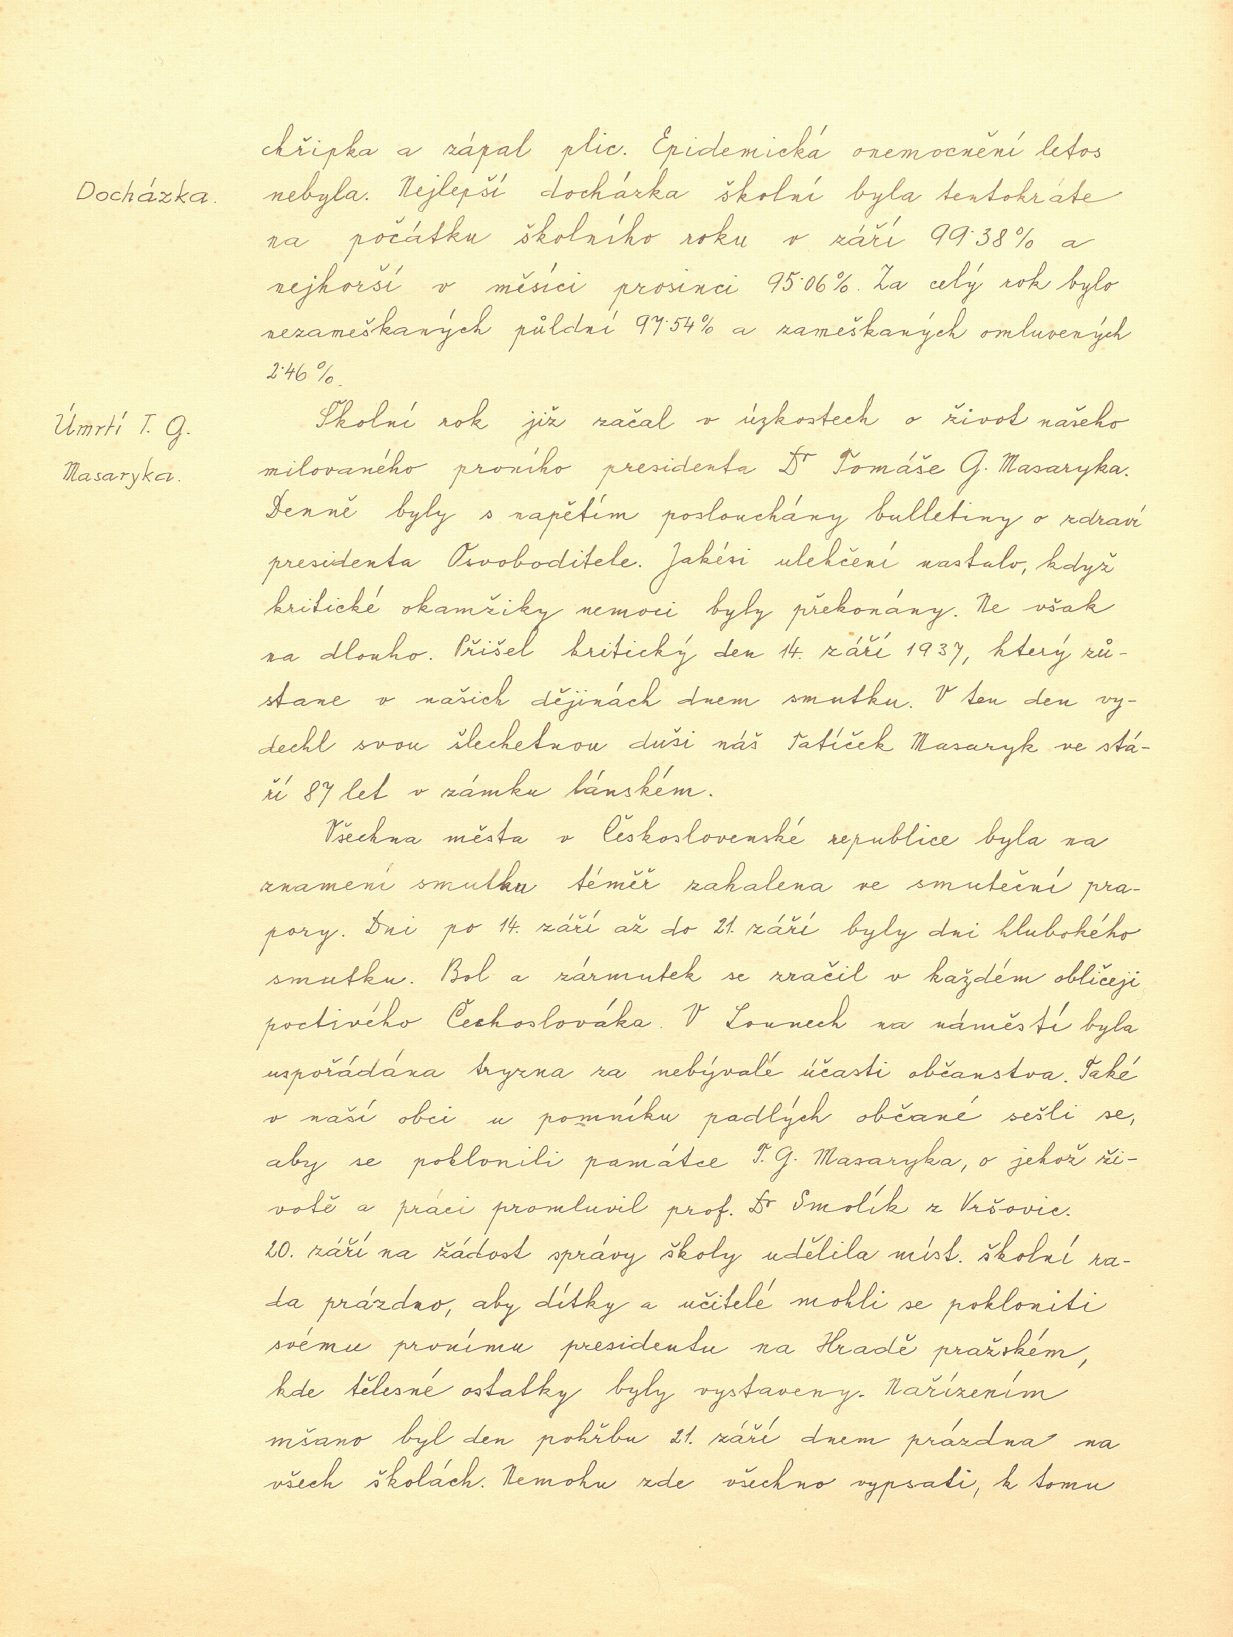 chřipka a zápal plic. Epidemická onemocnění letos
Docházka.
nebyla. Nejlepší docházka školní byla tentokráte
na počátku školního roku v září 99·38% a
nejhorší v měsíci prosinci 95·06%. Za celý rok bylo
nezameškaných půldní 97·54% a zameškaných omluvených
2·46%.
Úmrtí T. G.
Masaryka.
Školní rok již začal v úzkostech o život našeho
milovaného prvního presidenta Dr Tomáše G. Masaryka.
Denně byly s napětím poslouchány bulletiny o zdraví
presidenta Osvoboditele. Jakési ulehčení nastalo, když
kritické okamžiky nemoci byly překonány. Ne však
na dlouho. Přišel kritický den 14. září 1937, který zů-
stane v našich dějinách dnem smutku. V ten den vy-
dechl svou šlechetnou duši náš Tatíček Masaryk ve stá-
ří 87 let v zámku lánském.
Všechna města v Československé republice byla na
znamení smutku téměř zahalena ve smuteční pra-
pory. Dni po 14. září až do 21. září byly dni hlubokého
smutku. Bol a zármutek se zračil v každém obličeji
poctivého Čechoslováka. V Lounech na náměstí byla
uspořádána tryzna za nebývalé účasti občanstva. Také
v naší obci u pomníku padlých občané sešli se,
aby se poklonili památce T. G. Masaryka, o jehož ži-
votě a práci promluvil prof. Dr Smolík z Vršovic.
20. září na žádost správy školy udělila míst. školní ra-
da prázdno, aby dítky a učitelé mohli se pokloniti
svému prvnímu presidentu na Hradě pražském,
kde tělesné ostatky byly vystaveny. Nařízením
mšano byl den pohřbu 21. září dnem prázdna na
všech školách. Nemohu zde všechno vypsati, k tomu